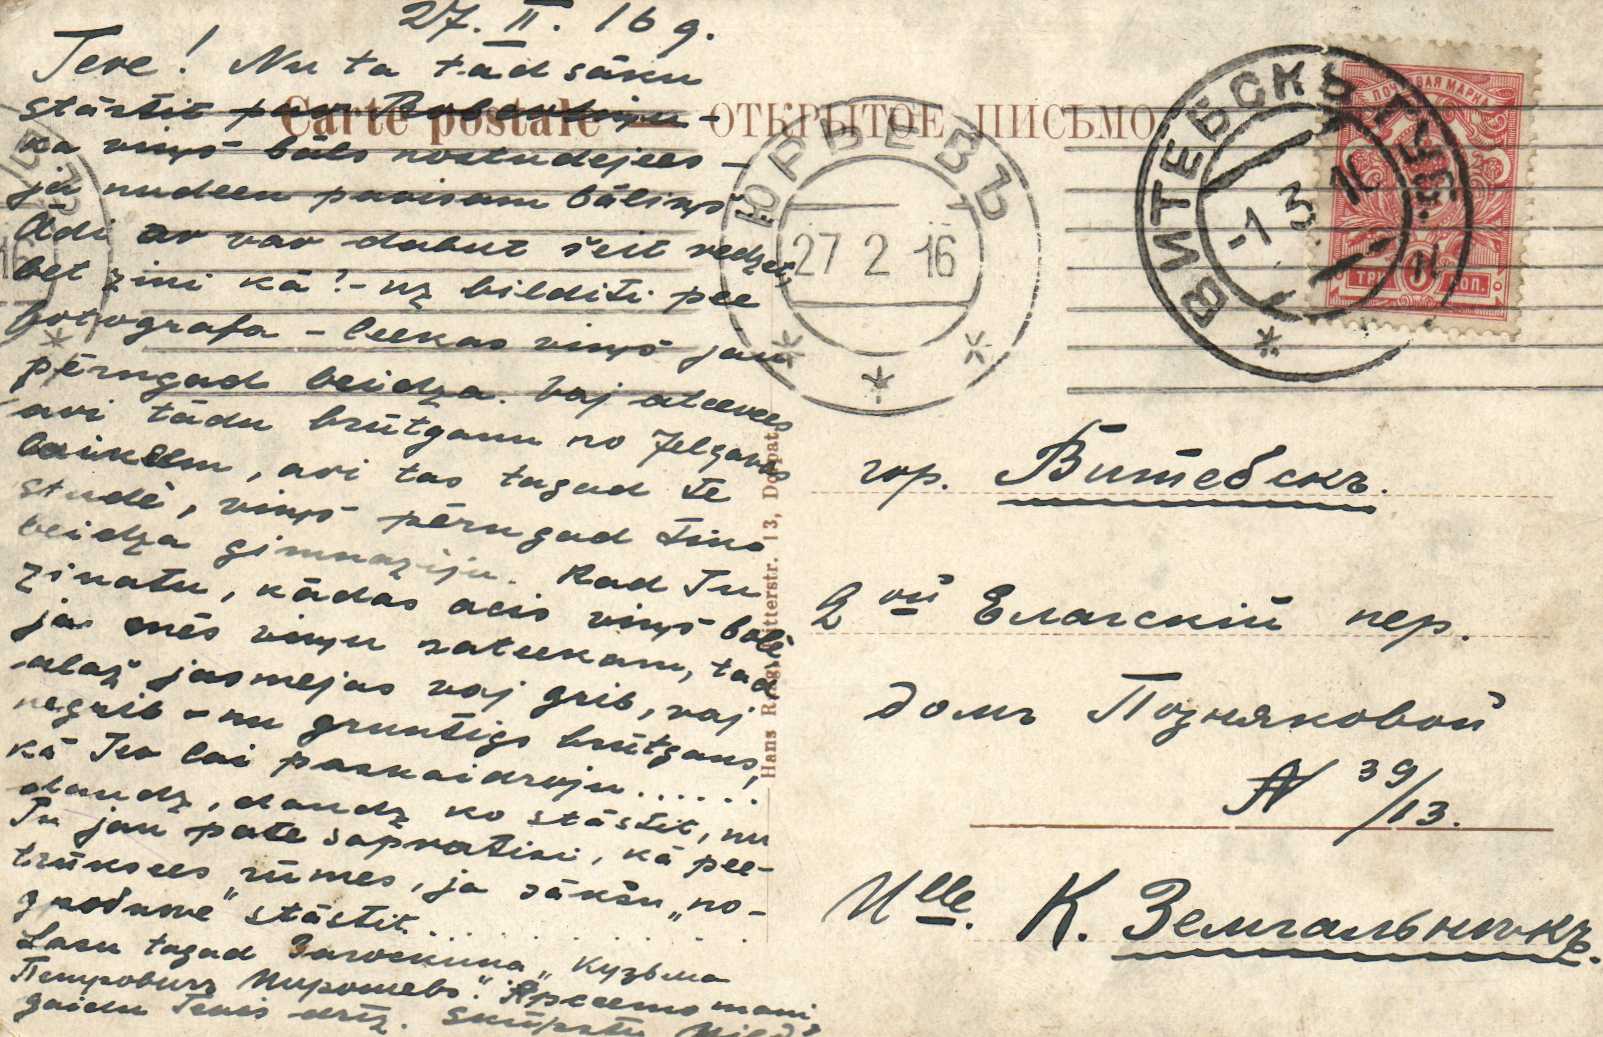 27. II. 16 g.
Teve! Nu ta tad sāku
stāstit par
ka viņš bāls nostudejees –
ja nudeen pavisam bāliņš!
Ādi ar var dabut šeit redzet,
bet zini kā? – uz bilditi pee
fotografa – leekas viņš jau
pērngad beidza. Vaj atceries
arī tādu brūtganu no Jelgavas
laikeem, arī tas tagad te
studē, viņš pērngad tikā
beidza gimnaziju. Kad Tu
zinatu, kādas acis viņš bolē,
ja mēs viņu sateekam, tad
alaž jasmejas vaj grib, vaj
negrib – nu gruntigs brūtgans,
kā Tev lai paskaidroju......!
daudz, daudz ko stāstit, nu
Tu jau pate sapratisi, kā pee-
trūksees rūmes, ja sākšu „no-
gruduwe" stāstit..............
Lasu tagad „Кузьма
Петровичъ Мирошевъ."
gaidu Tevis driz. Skūpstu
Carte postale — ОТКРЫТОЕ ПИСЬМО
ЮРЬЕВЪ
27 2 16
ВИТЕБСКЪ
-1 3 16
ПОЧТОВАЯ МАРКА
ТРИ КОП.
Hans
13, Dorpat
гор. Витебскъ.
2ой Елагскій пер.
домъ Позняковой
N 39/13.
Mlle. К. Земгальничкъ.